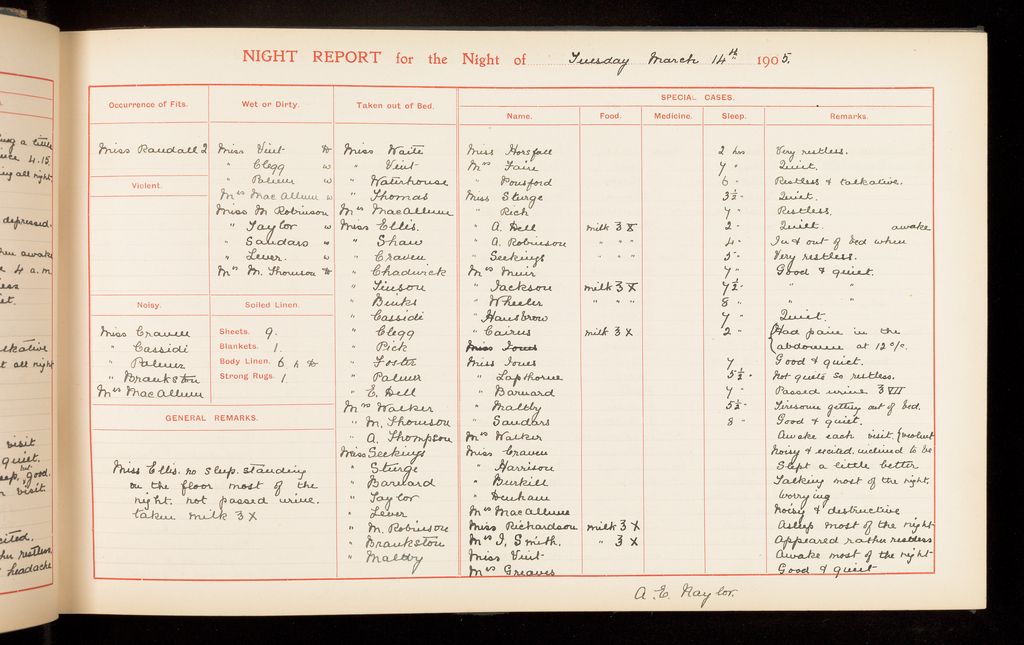 ing a little
4.15
ing all night
depressed.
awake
4 a.m
all night
visit
quiet.
but
good.
visit.
restless
headache
NIGHT REPORT for the Night of Tuesday March 14th 1905.
Occurrence of Fits.
Miss Randall 2
Violent.
Noisy.
Miss Craven
" Cassidi
" Palmer
" Brankston
Mrs MacAllum
Wet or Dirty.
Miss Vint
" Clegg w
" Palmer w
Mrs MacAllum w
Miss M Robinson
" Taylor w
" Sandars w
" Lever. w
Mrs M. Thomson
Soiled Linen.
Sheets. 9.
Blankets. 1.
Body Linen. 6
Strong Rugs. 1.
GENERAL REMARKS.
Miss Ellis. no sleep. standing
on the floor most of the
night. not passed urine.
taken milk 3 X
Taken out of Bed.
Miss Waite
" Vint
" Waterhouse
" Thomas
Mrs MacAllum
Miss Ellis.
" Shaw
" Craven
" Chadwick
" Simson
" Binks
" Cassidi
" Clegg
" Pick
" Foster
" Palmer
" E. Dell
Mrs Walker
" M. Thomson
" A. Thompson
Miss Seekings
" Sturge
" Barnard
" Taylor
" Lever
" M. Robinson
" Brankston
" Maltby
SPECIAL CASES.
Name. Food. Medicine. Sleep. Remarks.
Miss Horsfall 2 hrs Very restless.
Mrs Faire 7 " Quiet.
" Ponsford 6 " Restless & talkative.
Miss Sturge 3½ " Quiet.
" Rich 7 " Restless.
" A. Dell milk 3 X 2 " Quiet. awake
" A. Robinson " " " 4 " In & out of bed when
" Seekings " " " 5 " Very restless.
Mrs Muir 7 " Good & quiet.
" Jackson milk 3 X 7½ " " "
" Wheeler " " " 8 " " "
" Hansbrow 7 " Quiet.
" Cairns milk 3 X 2 " Had pain in the
Miss Jones abdomen at 12 o/c.
Miss Jones 7 " Good & quiet.
" Lapthorne 5½ " Not quite so restless.
" Barnard 7 " Passed urine 3 VII
" Maltby 5½ " Tiresome getting out of bed.
" Sandars 8 " Good & quiet.
Mrs Walker Awake each visit. violent
Miss Craven Noisy & excited. inclined to be
" Harrison Slept a little better
" Burkill Talking most of the night.
" Denham Worrying
Mrs MacAllum Noisy & destructive
Miss Richardson milk 3 X Asleep most of the night
Mrs J. Smith. " 3 X Appeared rather restless
Miss Vint Awake most of the night
Mrs Greaves Good & quiet
A. E. Naylor.